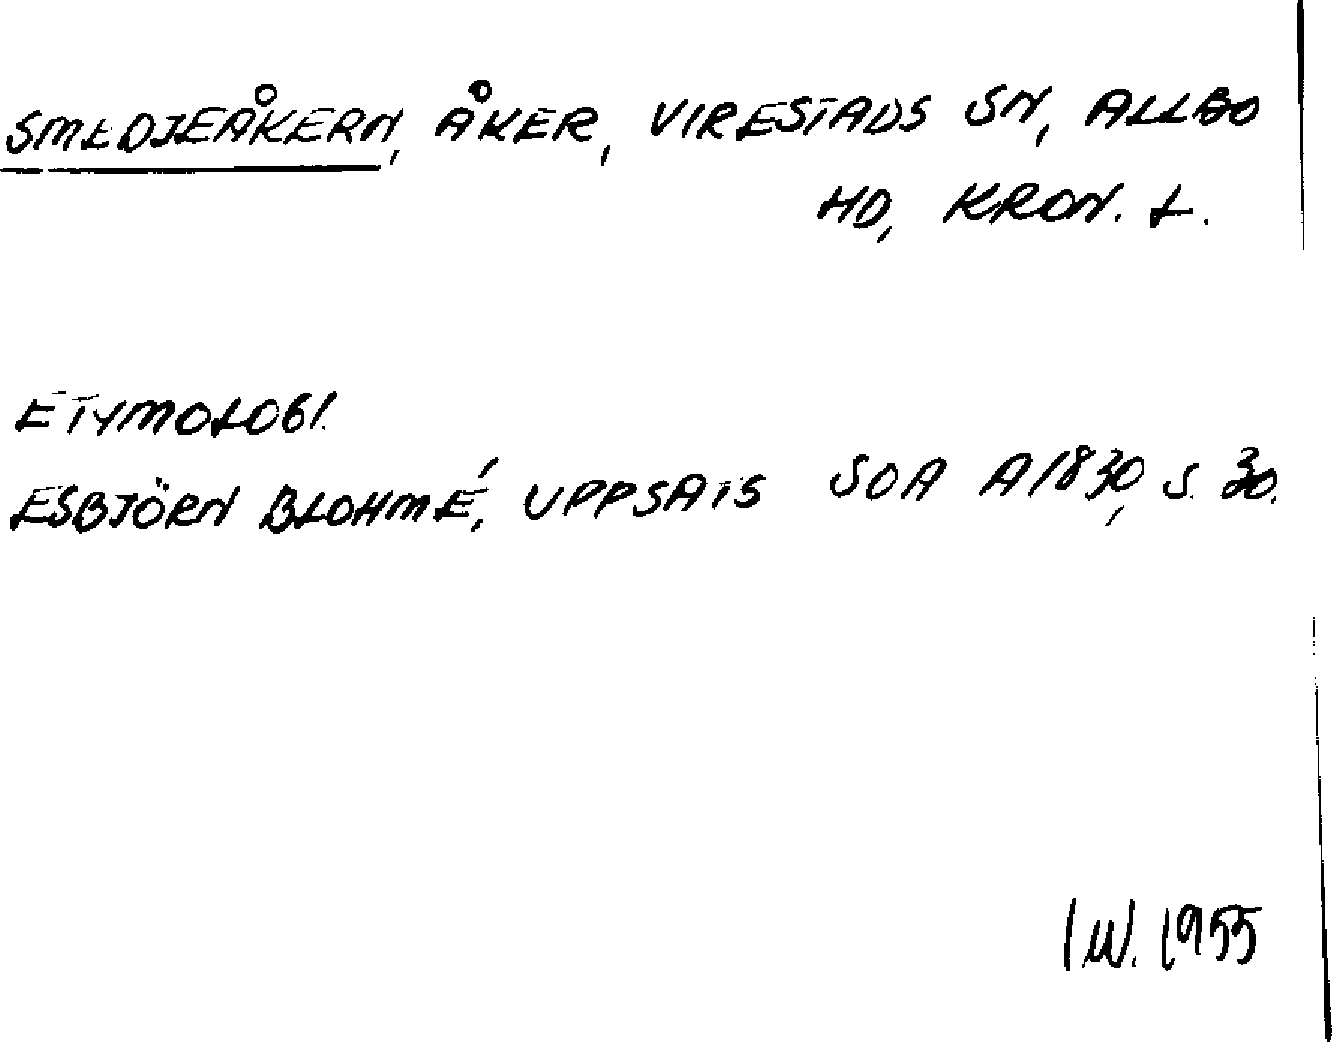 SMEDJEÅKERN, ÅKER, VIRESTADS SN, ALLBO
HD, KRON. L.
ETYMOLOGI.
ESBJÖRN BLOHMÉ, UPPSATS SOA A1830, S. 30.
I.W. 1955